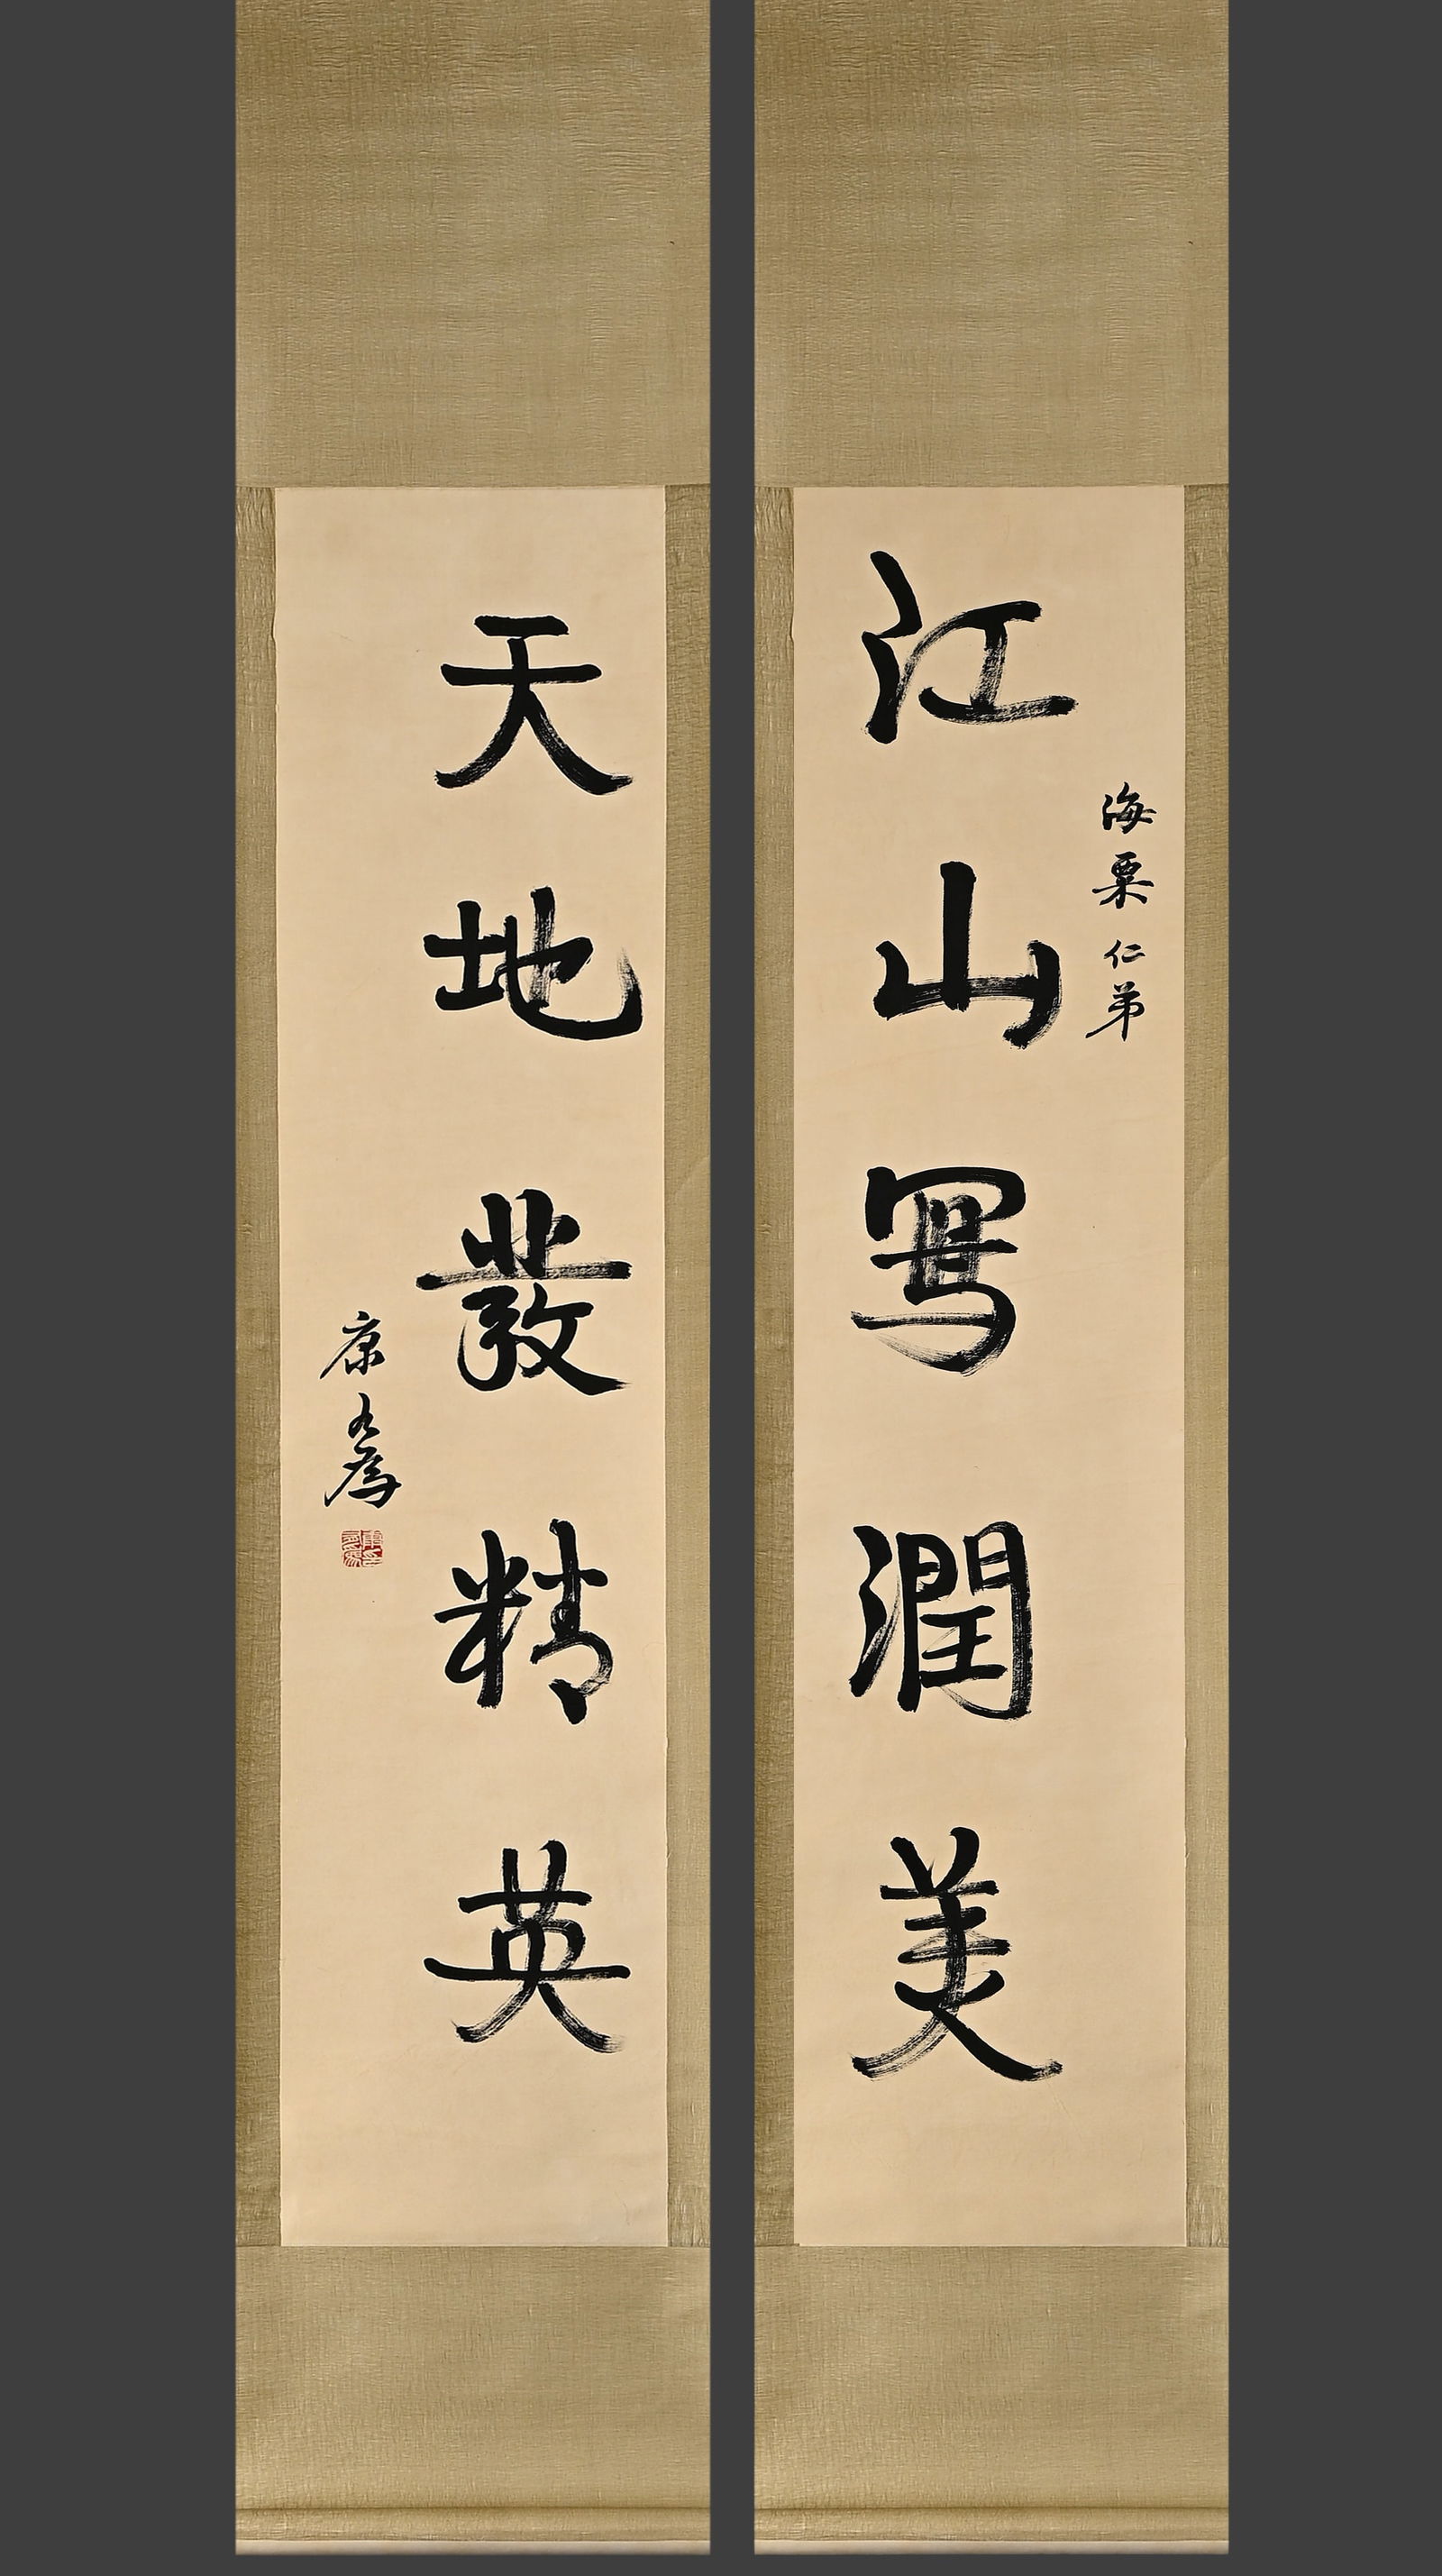 江山寫潤美
海粟仁弟
天地發精英
康有為